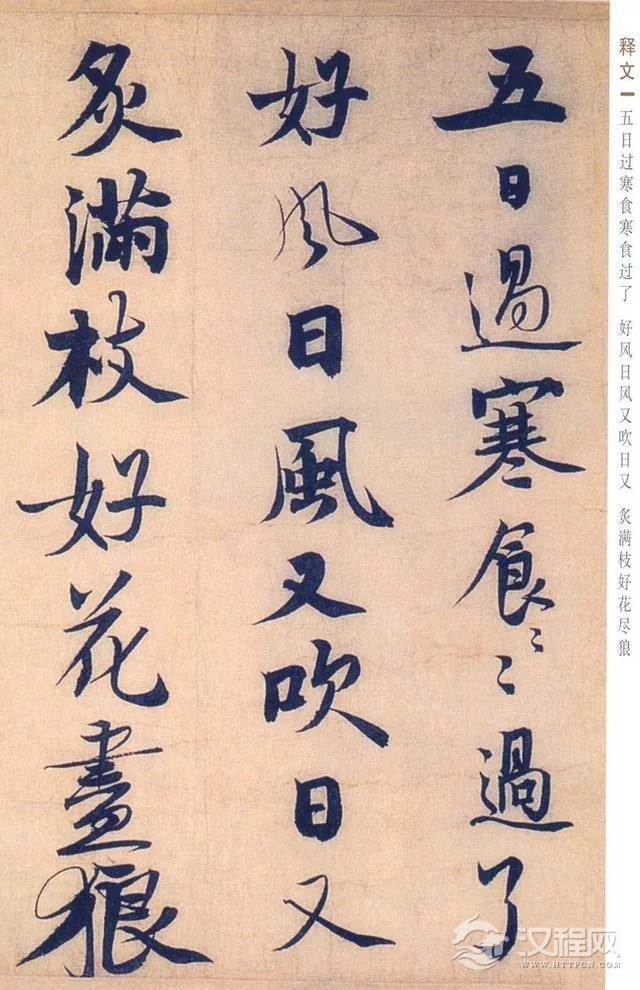 释文 五日过寒食寒食过了 好风日风又吹日又 炙满枝好花尽狼
五日過寒食〻〻過了
好風日風又吹日又
炙滿枝好花盡狼
汉程网
WWW.HTTPCN.COM